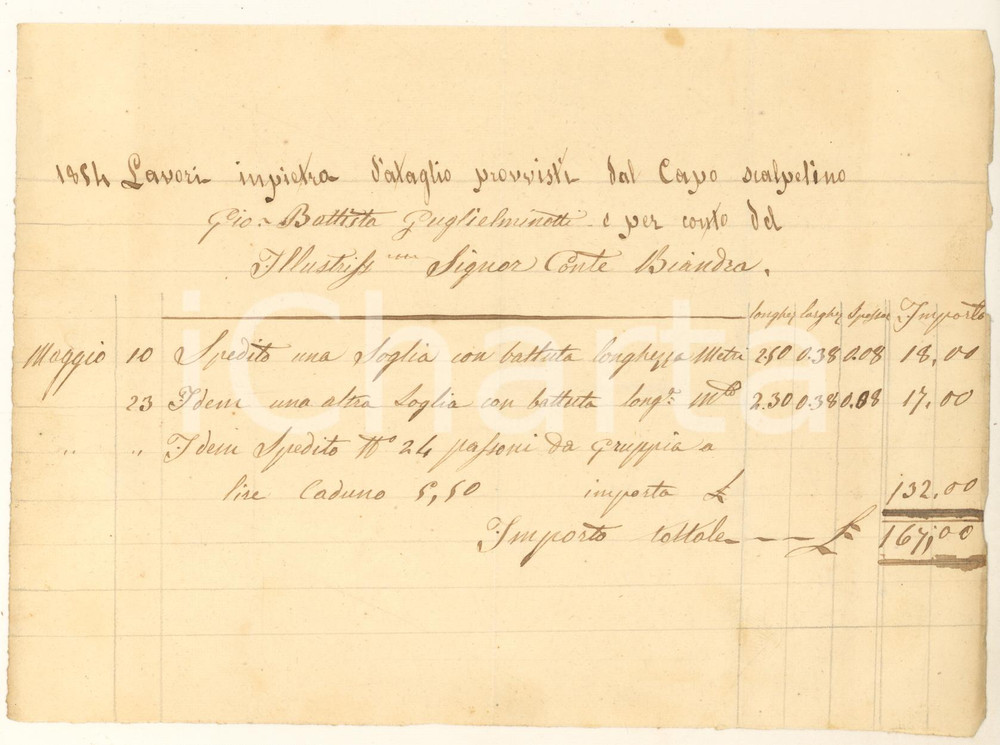 1854 Lavori in pietra d'ataglio provvisti dal Capo scalpelino
Gio. Battista Guglielminotti e per conto del
Illustriss.mo Signor Conte Biandra.
longhez larghez spessor Importo
Maggio 10 Spedito una Soglia con battuta longhezza Metri 2.50 0.38 0.08 18,00
23 Idem una altra Soglia con battuta long.a M.i 2.30 0.38 0.08 17,00
" " Idem Spedito N° 24 passoni da Gruppia a
lire Caduno 5,50 importa £ 132,00
Importo tottale £ 167,00
iCharta